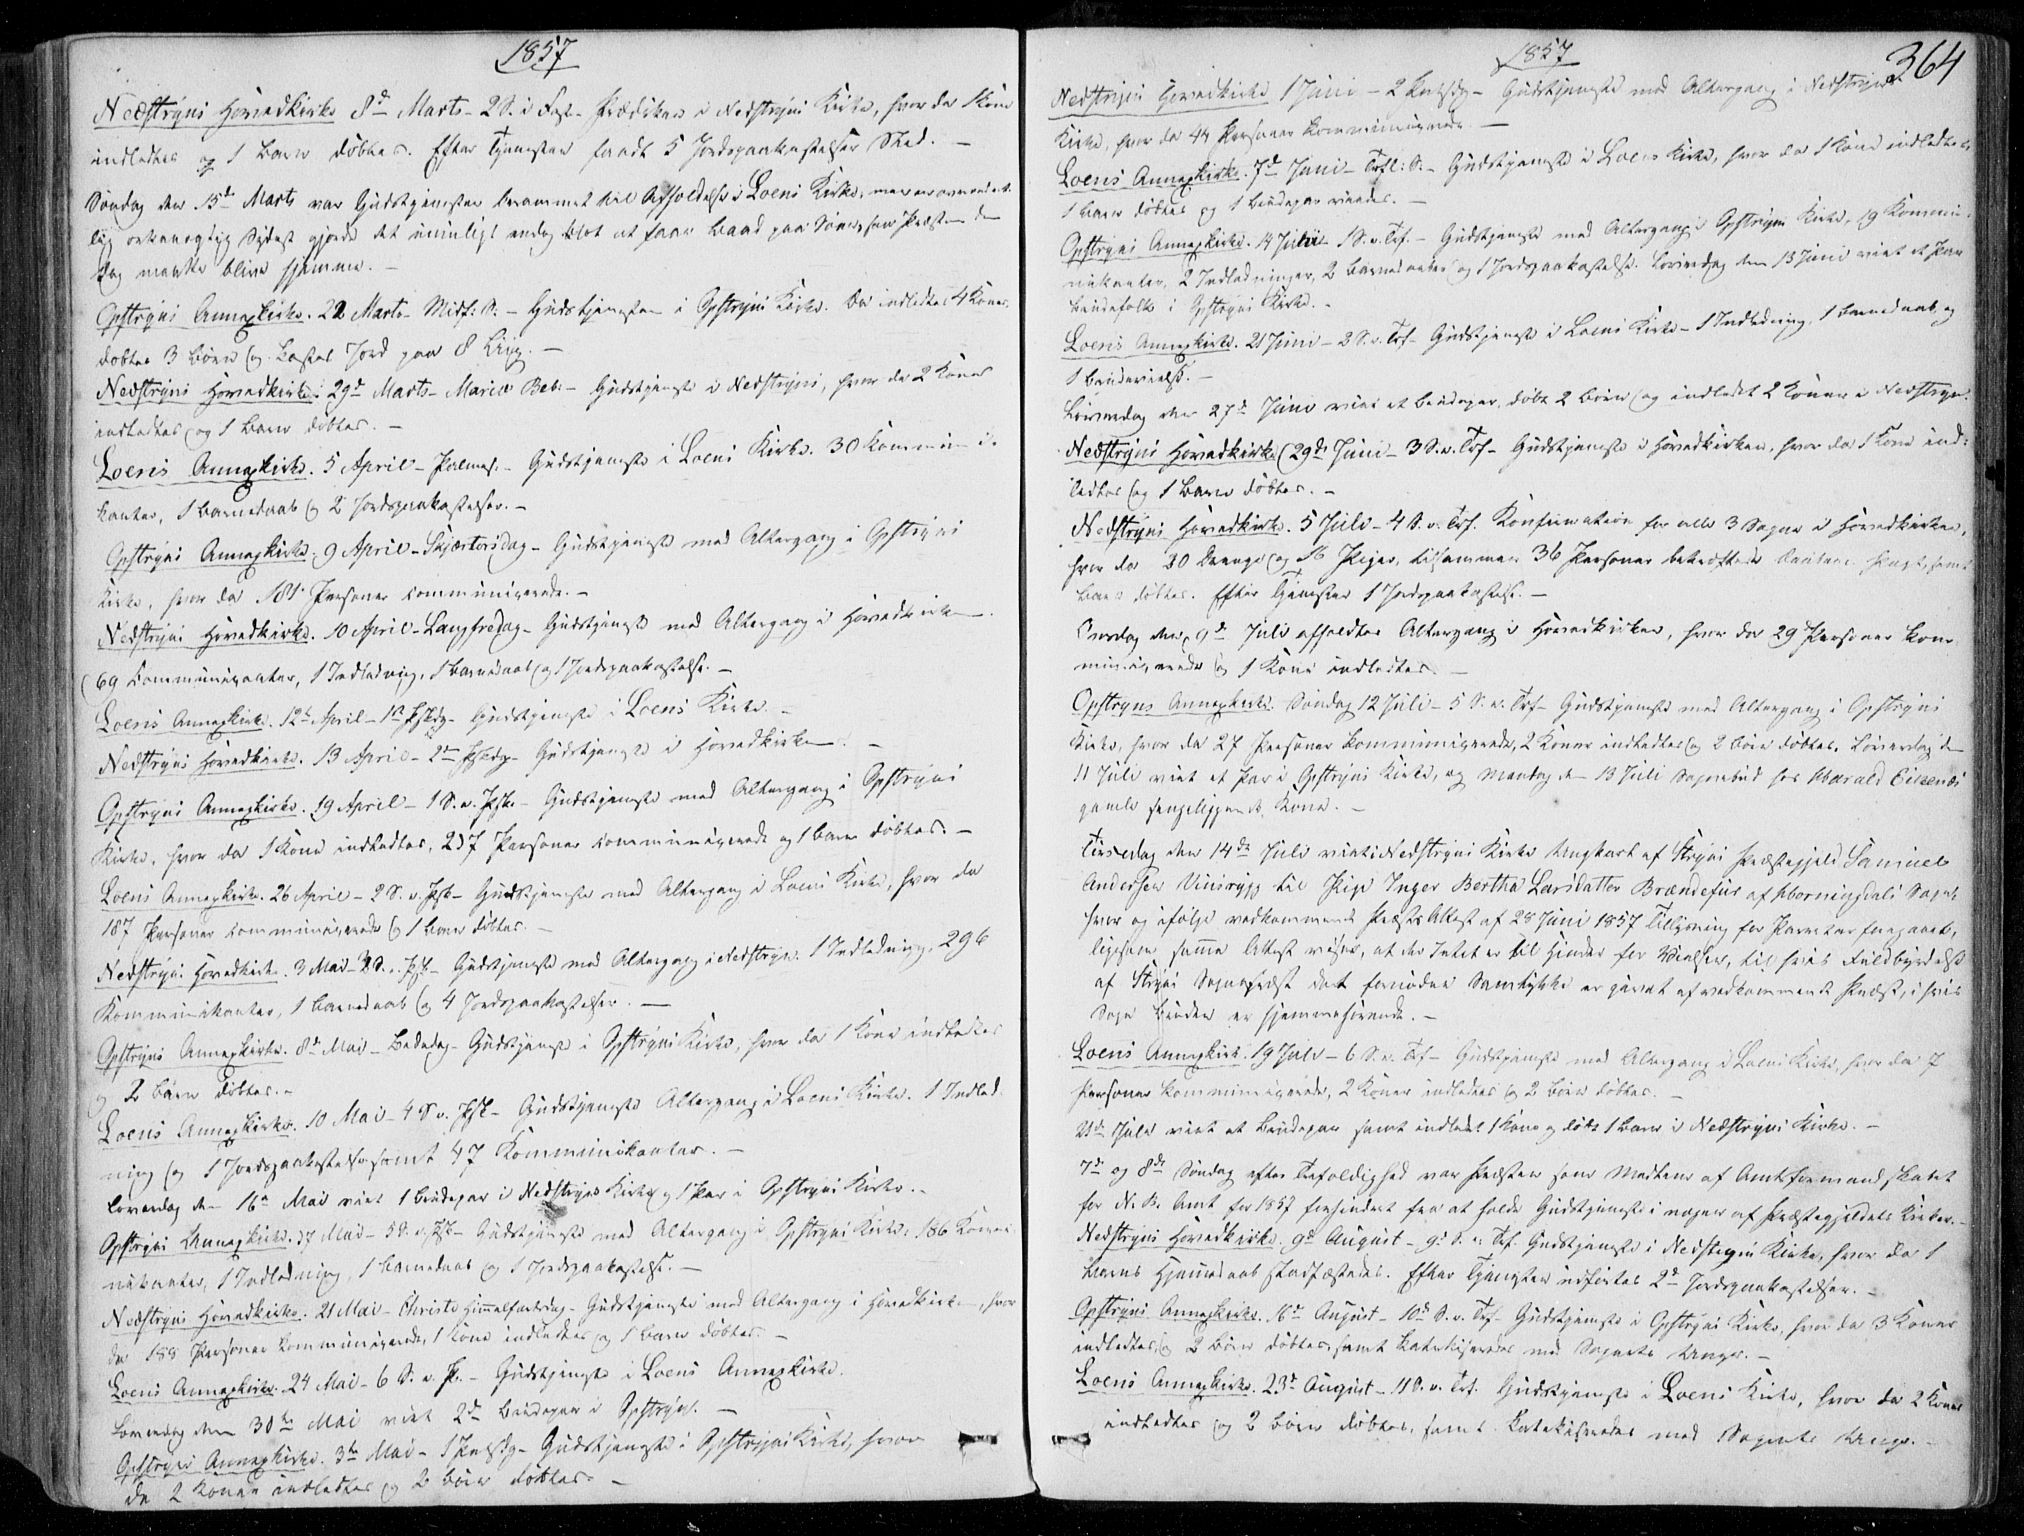 1857
Nedstryns Hovedkirke 8de Marts - 2 S. i Fast. Prædiken i Nedstryns Kirke, hvor da 1 Kone
indledtes og 1 Barn døbtes. Efter Tjenesten fandt 5 Jordspaakastelser Sted. -
Søndag den 15de Marts var Gudstjenesten berammet til Afholdelse i Loens Kirke, men
orkanagtig Sydvest gjorde det umuligt endog blot at faae Baad paa Søen, saa Præsten den
Dag maatte blive hjemme. -
Opstryns Annexkirke. 22 Marts - Midf: S. - Gudstjenesten i Opstryns Kirke. Da indledtes 4 Koner,
døbtes 3 Børn og kastet Jord paa 8 Liig. -
Nedstryns Hovedkirke. 29de Marts - Mariæ Beb: - Gudstjeneste i Nedstryns, hvor da 2 Koner
indledtes og 1 Barn døbtes. -
Loens Annexkirke. 5 April - Palmes. - Gudstjeneste i Loens Kirke. 30 Kommuni-
kanter, 1 Barnedaab og 2 Jordspaakastelser. -
Opstryns Annexkirke. 9 April - Skjærtorsdag - Gudstjeneste med Altergang i Opstryns
Kirke, hvor da 181 Personer communicerede. -
Nedstryns Hovedkirke. 10 April - Langfredag - Gudstjeneste med Altergang i Hovedkirken.
69 Communicanter, 1 Indledning, 1 Barnedaab og 1 Jordspaakastelse. -
Loens Annexkirke. 12te April - 1ste Pskdg - Gudstjeneste i Loens Kirke. -
Nedstryns Hovedkirke. 13 April - 2den Pskdg - Gudstjeneste i Hovedkirken. -
Opstryns Annexkirke. 19 April - 1 S. e. Psk. - Gudstjeneste med Altergang i Opstryns
Kirke, hvor da 1 Kone indledtes, 237 Personer communicerede og 1 Barn døbtes. -
Loens Annexkirke. 26 April - 2 S. e. Psk - Gudstjeneste med Altergang i Loens Kirke, hvor da
187 Personer communicerede og 1 Barn døbtes. -
Nedstryns Hovedkirke. 3 Mai - 3 S. e. Psk - Gudstjeneste med Altergang i Nedstryn. 1 Indledning, 296
Kommunikanter, 1 Barnedaab og 4 Jordspaakastelser. -
Opstryns Annexkirke. 8de Mai - Bededag - Gudstjeneste i Opstryns Kirke, hvor da 1 Kone indledtes
og 2 Børn døbtes. -
Loens Annexkirke. 10 Mai - 4 S. e. Psk - Gudstjeneste Altergang i Loens Kirke. 1 Indled-
ning og 1 Jordspaakastelse samt 47 Kommunikanter. -
Løverdag den 16de Mai viet 1 Brudepar i Nedstryns Kirke og 1 Par i Opstryns Kirke. -
Opstryns Annexkirke. 17 Mai - 5 S. e. Psk - Gudstjeneste med Altergang i Opstryns Kirke, 186 Kommu-
nikanter, 1 Indledning, 1 Barnedaab og 1 Jordspaakastelse. -
Nedstryns Hovedkirke. 21 Mai - Christi Himmelfartsdag - Gudstjeneste med Altergang i Hovedkirken, hvor
da 188 Personer kommunicerede, 1 Kone indledtes og 1 Barn døbtes. -
Loens Annexkirke. 24 Mai - 6 S. e. P. - Gudstjeneste i Loens Annexkirke.
Løverdag den 30te Mai viet 2de Brudepar i Opstryn. -
Opstryns Annexkirke. Mai - 1 Pintsdg - Gudstjeneste i Opstryns Kirke, hvor
da 2 Koner indledtes og 2 Børn døbtes. -
1857
364
Nedstryns Hovedkirke 1 Juni - 2 Pintsdg - Gudstjeneste med Altergang i Nedstryns
Kirke, hvor da 44 Personer kommunicerede. -
Loens Annexkirke. 7de Juni - Trfl: S. - Gudstjeneste i Loens Kirke, hvor da 1 Kone indledtes,
1 Barn døbtes og 1 Brudepar viedes. -
Opstryns Annexkirke. 14 Juni 1 S. e. Trf. - Gudstjeneste med Altergang i Opstryns Kirke, 19 Kommu-
nikanter, 2 Indledninger, 2 Barnedaaber og 1 Jordspaakastelse. Løverdag den 13 Juni viet et Par
Brudefolk i Opstryns Kirke. -
Loens Annexkirke. 21 Juni - 2 S. e. Trf - Gudstjeneste i Loens Kirke - 1 Indledning, 1 Barnedaab og
1 Brudevielse. -
Løverdag den 27de Juni viet et Brudepar, døbt 2 Børn og indledet 2 Koner i Nedstryn.
Nedstryns Hovedkirke (29de Juni - 3 S. e. Trf - Gudstjeneste i Hovedkirken, hvor da 1 Kone ind-
ledtes og 1 Barn døbtes. -
Nedstryns Hovedkirke. 5 Juli - 4 S. e. Trf. Konfirmation for alle 3 Sogne i Hovedkirken,
hvor da 20 Drenge og 16 Piger, tilsammen 36 Personer bekræftede Daabens Pagt, samt
Barn døbtes. Efter Tjenesten 1 Jordspaakastelse. -
Torsdag den 9de Juli afholdtes Altergang i Hovedkirken, hvor da 29 Personer kom-
municerede og 1 Kone indledtes. -
Opstryns Annexkirke. Søndag 12 Juli - 5 S. e. Trf - Gudstjeneste med Altergang i Opstryns
Kirke, hvor da 27 Personer kommunicerede, 2 Koner indledtes og 2 Børn døbtes. Løverdag den
11 Juli viet et Par i Opstryns Kirke, og Mandag den 13 Juli Sognebud hos Harald
gamle sengeliggende Kone. -
Tirsdag den 14de Juli viet i Nedstryns Kirke Ungkarl af Stryns Præstegjeld Samuel
Andersen Vinsrygg til Pige Inger Bertha Larsdatter Brændefur af Horningdals Sogn,
hvor og ifølge vedkommende Præsts Attest af 28 Juni 1857 Tillysning for Parret er foregaaet,
ligesom samme Attest viser, at der Intet er til Hinder for Vielsen, til hvis Fuldbyrdelse
af Stryns Sognepræst det fornødne Samtykke er givet af vedkommende Præst, i hvis
Sogn Bruden er hjemmehørende. -
Loens Annexkirke. 19 Juli - 6 S. e. Trf - Gudstjeneste med Altergang i Loens Kirke, hvor da 7
Personer kommunicerede, 2 Koner indledtes og 2 Børn døbtes. -
21de Juli viet et Brudepar samt indledet 1 Kone og døbt 1 Barn i Nedstryns Kirke. -
7de og 8de Søndag efter Trefoldighed var Præsten som Medlem af Amtsformandskabet
for N. B. Amt for 1857 forhindret fra at holde Gudstjeneste i nogen af Præstegjeldets Kirker. -
Nedstryns Hovedkirke. 9de August - 9de S. e. Trf. Gudstjeneste i Nedstryns Kirke, hvor da 1
Barns Hjemmedaab stadfæstedes. Efter Tjenesten udførtes 2de Jordspaakastelser. -
Opstryns Annexkirke. 16de August - 10de S. e. Trf - Gudstjeneste i Opstryns Kirke, hvor da 3 Koner
indledtes, og 2 Børn døbtes, samt katekiseredes med Sognets Unge. -
Loens Annexkirke. 23de August - 11 S. e. Trf. Gudstjeneste i Loens Kirke, hvor da 2 Koner
indledtes og 2 Børn døbtes, samt katekiseredes med Sognets Unge. -